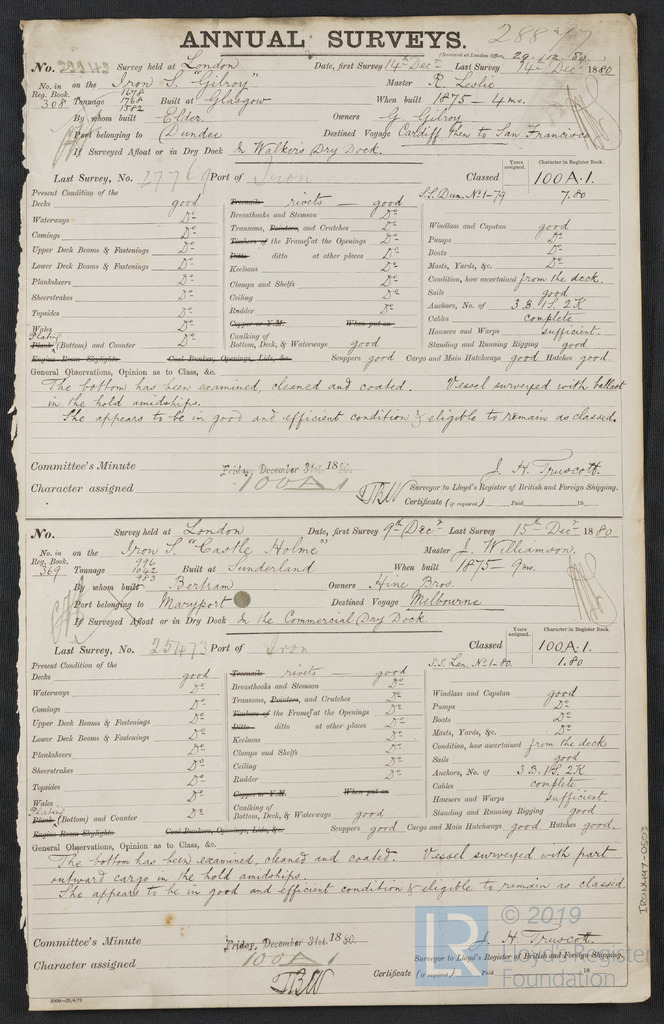 288
ANNUAL SURVEYS.
(Received at London Office, 29.12.80)
No. 29943 Survey held at London Date, first Survey 14th Decr Last Survey 14th Decr 1880
No. in Reg. Book. on the Iron S. "Gilroy" Master R. Leslie
308 Tonnage 1678 1768 1582 Built at Glasgow When built 1875 - 4 mo.
By whom built Elder Owners G. Gilroy
Port belonging to Dundee Destined Voyage Cardiff then to San Francisco
If Surveyed Afloat or in Dry Dock In Walker's Dry Dock.
Years assigned. Character in Register Book.
Last Survey, No. Port of Iron Classed 100A.1.
S.S. Dun. No 1-79 7.80
Present Condition of the
Decks good
Waterways Do
Comings Do
Upper Deck Beams & Fastenings Do
Lower Deck Beams & Fastenings Do
Planksheers Do
Sheerstrakes Do
Topsides Do
Wales Do
Plating
Plank (Bottom) and Counter Do
Engine Room Skylights Coal Bunker, Openings, Lids, &c.
Treenails rivets good
Breasthooks and Stemson Do
Transoms, Pointers, and Crutches Do
Timbers of the Frames at the Openings Do
Ditto ditto at other places Do
Keelsons Do
Clamps and Shelfs Do
Ceiling Do
Rudder Do
Copper or Y.M. When put on
Caulking of Bottom, Deck, & Waterways good
Windlass and Capstan good
Pumps Do
Boats Do
Masts, Yards, &c. Do
Condition, how ascertained from the deck.
Sails good
Anchors, No. of 3 B. 1 S. 2 K
Cables complete
Hawsers and Warps sufficient.
Standing and Running Rigging good
Scuppers good Cargo and Main Hatchways good Hatches good.
General Observations, Opinion as to Class, &c.
The bottom has been examined, cleaned and coated. Vessel surveyed with ballast
in the hold amidships.
She appears to be in good and efficient condition & eligible to remain as classed.
Committee's Minute Friday, December 31st. 1880. J. H. Truscott.
Character assigned 100A1 Surveyor to Lloyd's Register of British and Foreign Shipping.
Certificate (if required) Paid 18
No. Survey held at London Date, first Survey 9th Decr Last Survey 15th Decr 1880
No. in Reg. Book. on the Iron S. "Castle Holme" Master J. Williamson.
369 Tonnage 996 1042 983 Built at Sunderland When built 1875 - 9 mo.
By whom built Bertram Owners Hine Bros.
Port belonging to Maryport Destined Voyage Melbourne
If Surveyed Afloat or in Dry Dock In the Commercial Dry Dock.
Years assigned. Character in Register Book.
Last Survey, No. 25473 Port of Iron Classed 100A.1.
S.S. Lon. No 1-80. 1.80
Present Condition of the
Decks good
Waterways Do
Comings Do
Upper Deck Beams & Fastenings Do
Lower Deck Beams & Fastenings Do
Planksheers Do
Sheerstrakes Do
Topsides Do
Wales Do
Plating
Plank (Bottom) and Counter Do
Engine Room Skylights Coal Bunkers, Openings, Lids, &c.
Treenails rivets good
Breasthooks and Stemson Do
Transoms, Pointers, and Crutches Do
Timbers of the Frames at the Openings Do
Ditto ditto at other places Do
Keelsons Do
Clamps and Shelfs Do
Ceiling Do
Rudder Do
Copper or Y.M. When put on
Caulking of Bottom, Deck, & Waterways good
Windlass and Capstan good
Pumps Do
Boats Do
Masts, Yards, &c. Do
Condition, how ascertained from the deck
Sails good
Anchors, No. of 3 B. 1 S. 2 K
Cables complete
Hawsers and Warps sufficient.
Standing and Running Rigging good
Scuppers good Cargo and Main Hatchways good Hatches good.
General Observations, Opinion as to Class, &c.
The bottom has been examined, cleaned and coated. Vessel surveyed with part
outward cargo in the hold amidships.
She appears to be in good and efficient condition & eligible to remain as classed.
Committee's Minute Friday, December 31st. 1880. J. H. Truscott.
Character assigned 100A1 Surveyor to Lloyd's Register of British and Foreign Shipping.
Certificate (if required) Paid 18
IRON497-0503
LR © 2019
Lloyd's Register
Foundation